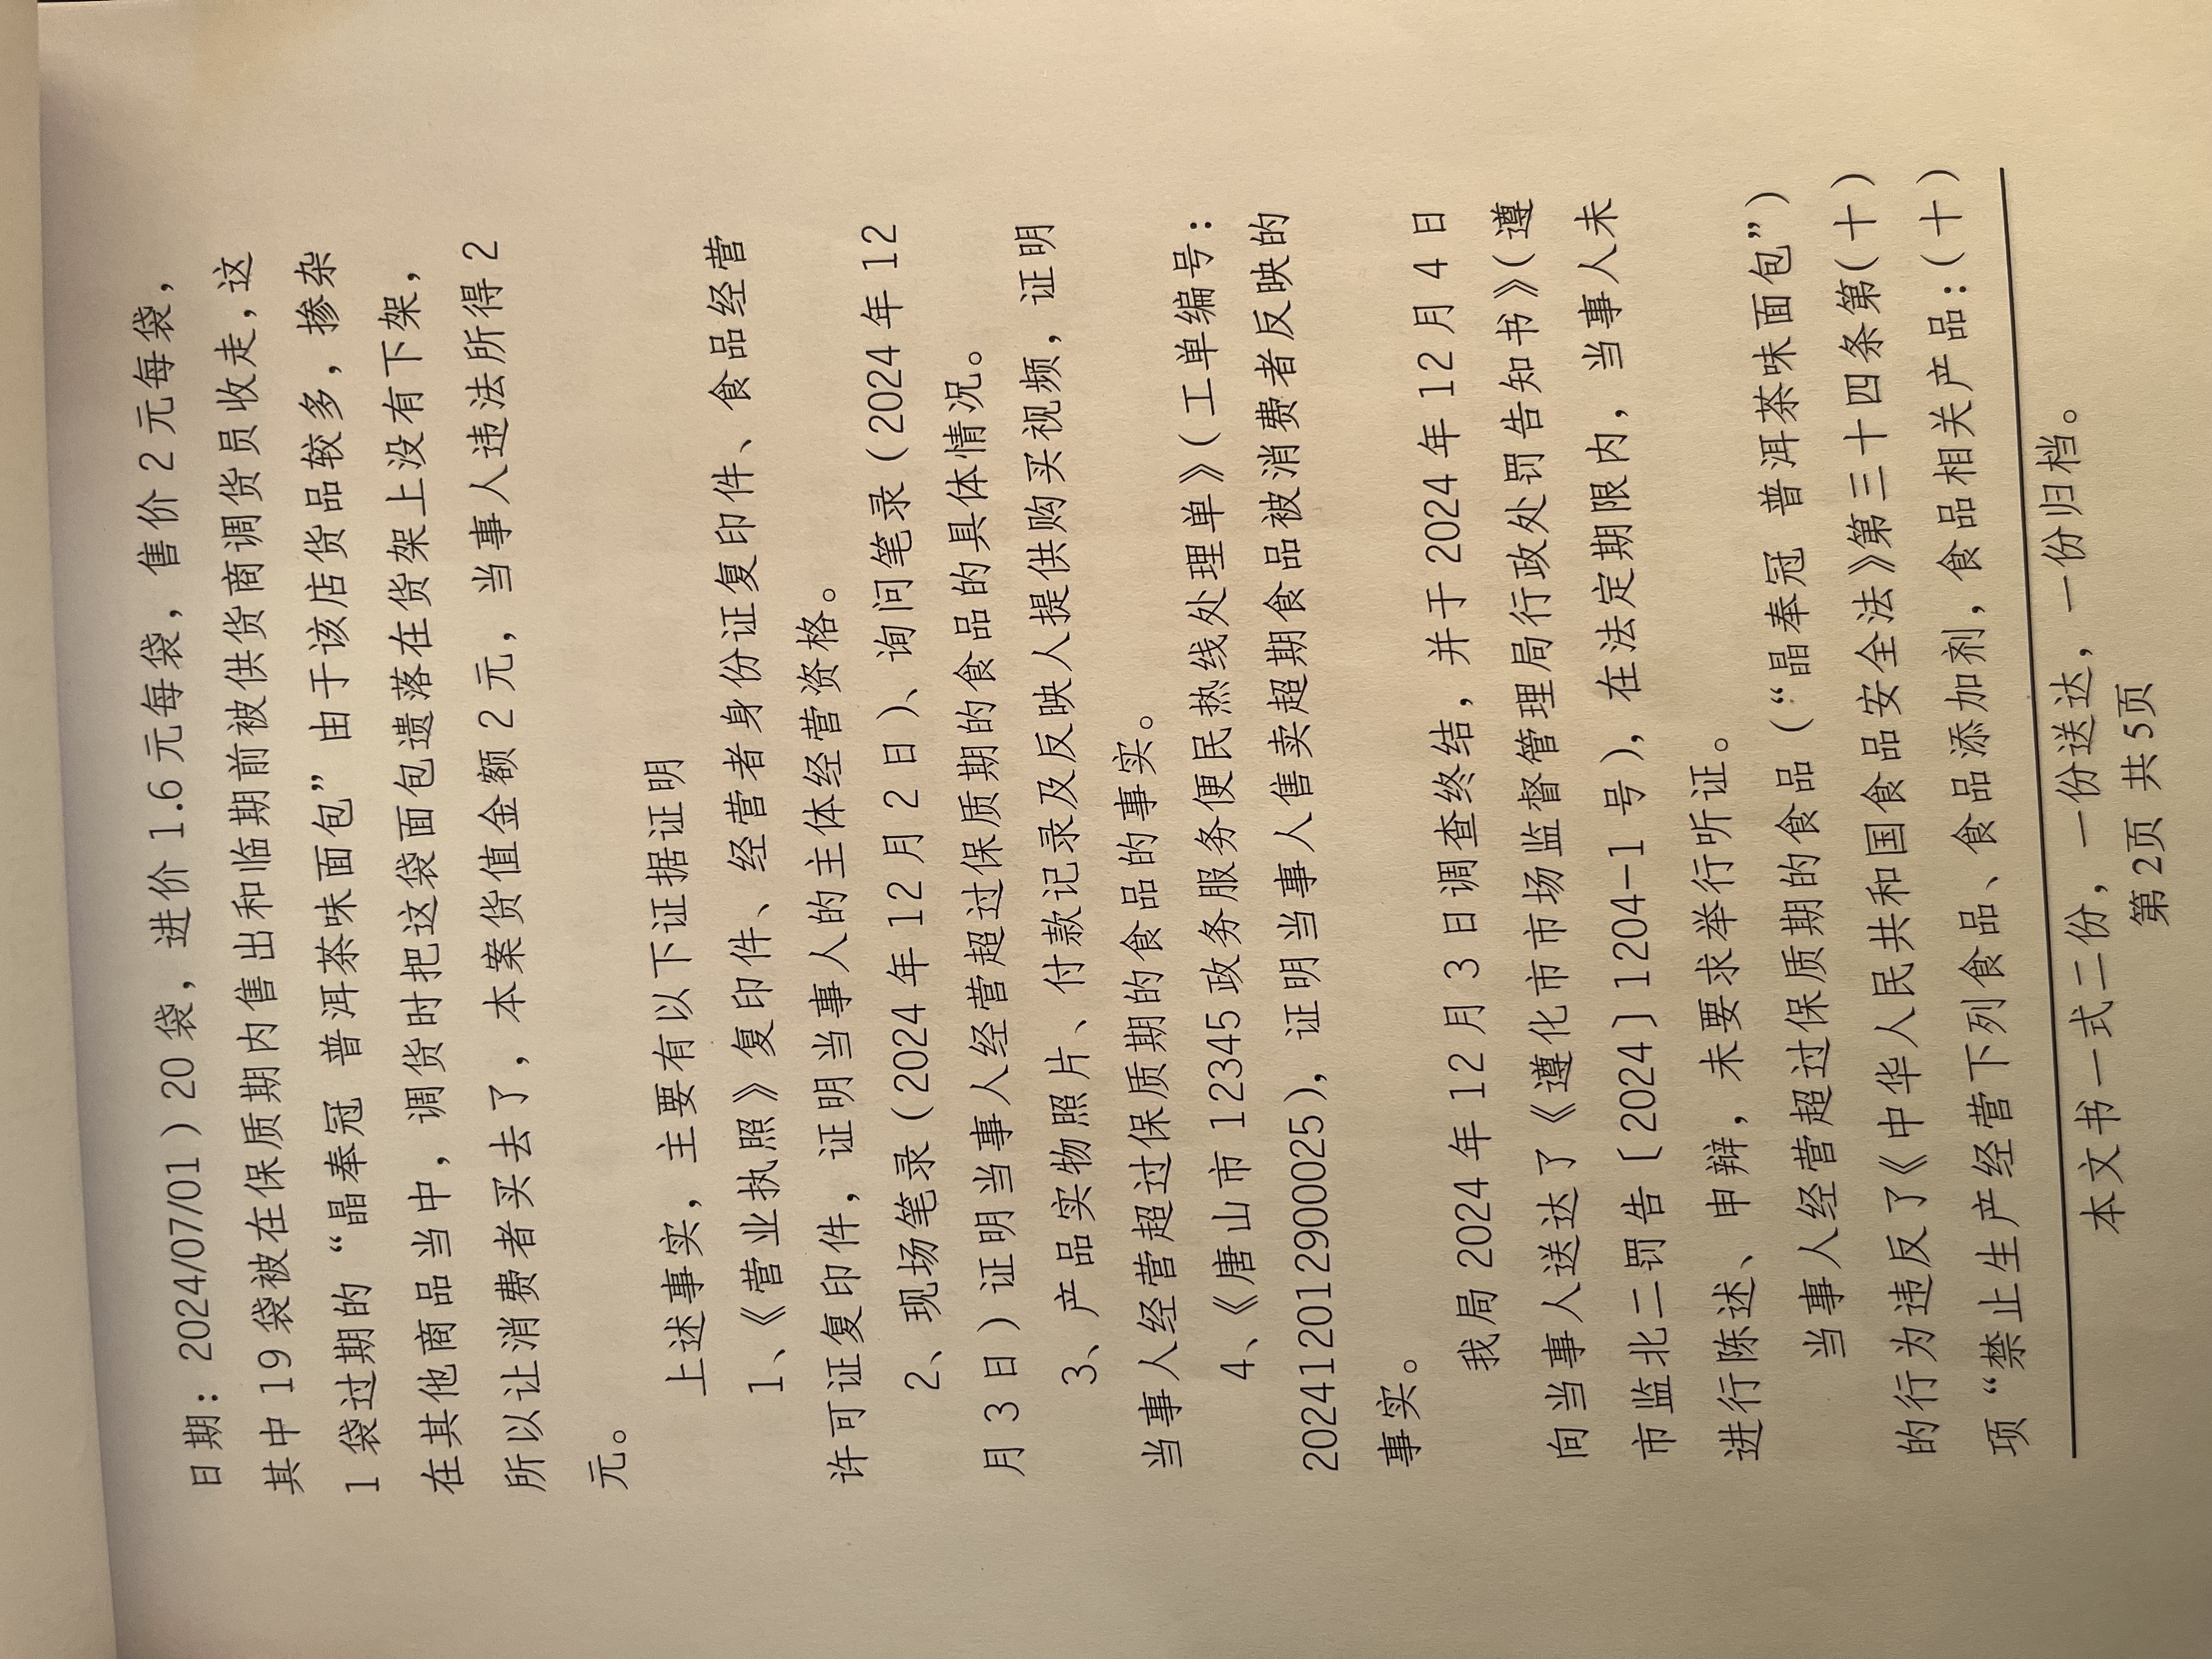 日期：2024/07/01）20 袋，进价 1.6 元每袋，售价 2 元每袋，
其中 19 袋被在保质期内售出和临期前被供货商调货员收走，这
1 袋过期的 “晶奉冠 普洱茶味面包” 由于该店货品较多，掺杂
在其他商品当中，调货时把这袋面包遗落在货架上没有下架，
所以让消费者买去了，本案货值金额 2 元，当事人违法所得 2
元。
上述事实，主要有以下证据证明
1、《营业执照》复印件、经营者身份证复印件、食品经营
许可证复印件，证明当事人的主体经营资格。
2、现场笔录（2024 年 12 月 2 日）、询问笔录（2024 年 12
月 3 日）证明当事人经营超过保质期的食品的具体情况。
3、产品实物照片、付款记录及反映人提供购买视频，证明
当事人经营超过保质期的食品的事实。
4、《唐山市 12345 政务服务便民热线处理单》（工单编号：
20241201290000​25），证明当事人售卖超期食品被消费者反映的
事实。
我局 2024 年 12 月 3 日调查终结，并于 2024 年 12 月 4 日
向当事人送达了《遵化市市场监督管理局行政处罚告知书》（遵
市监北二罚告［2024］1204-1 号），在法定期限内，当事人未
进行陈述、申辩，未要求举行听证。
当事人经营超过保质期的食品（“晶奉冠 普洱茶味面包”）
的行为违反了《中华人民共和国食品安全法》第三十四条第（十）
项 “禁止生产经营下列食品、食品添加剂，食品相关产品：（十）
本文书一式二份，一份送达，一份归档。
第 2页 共 5页